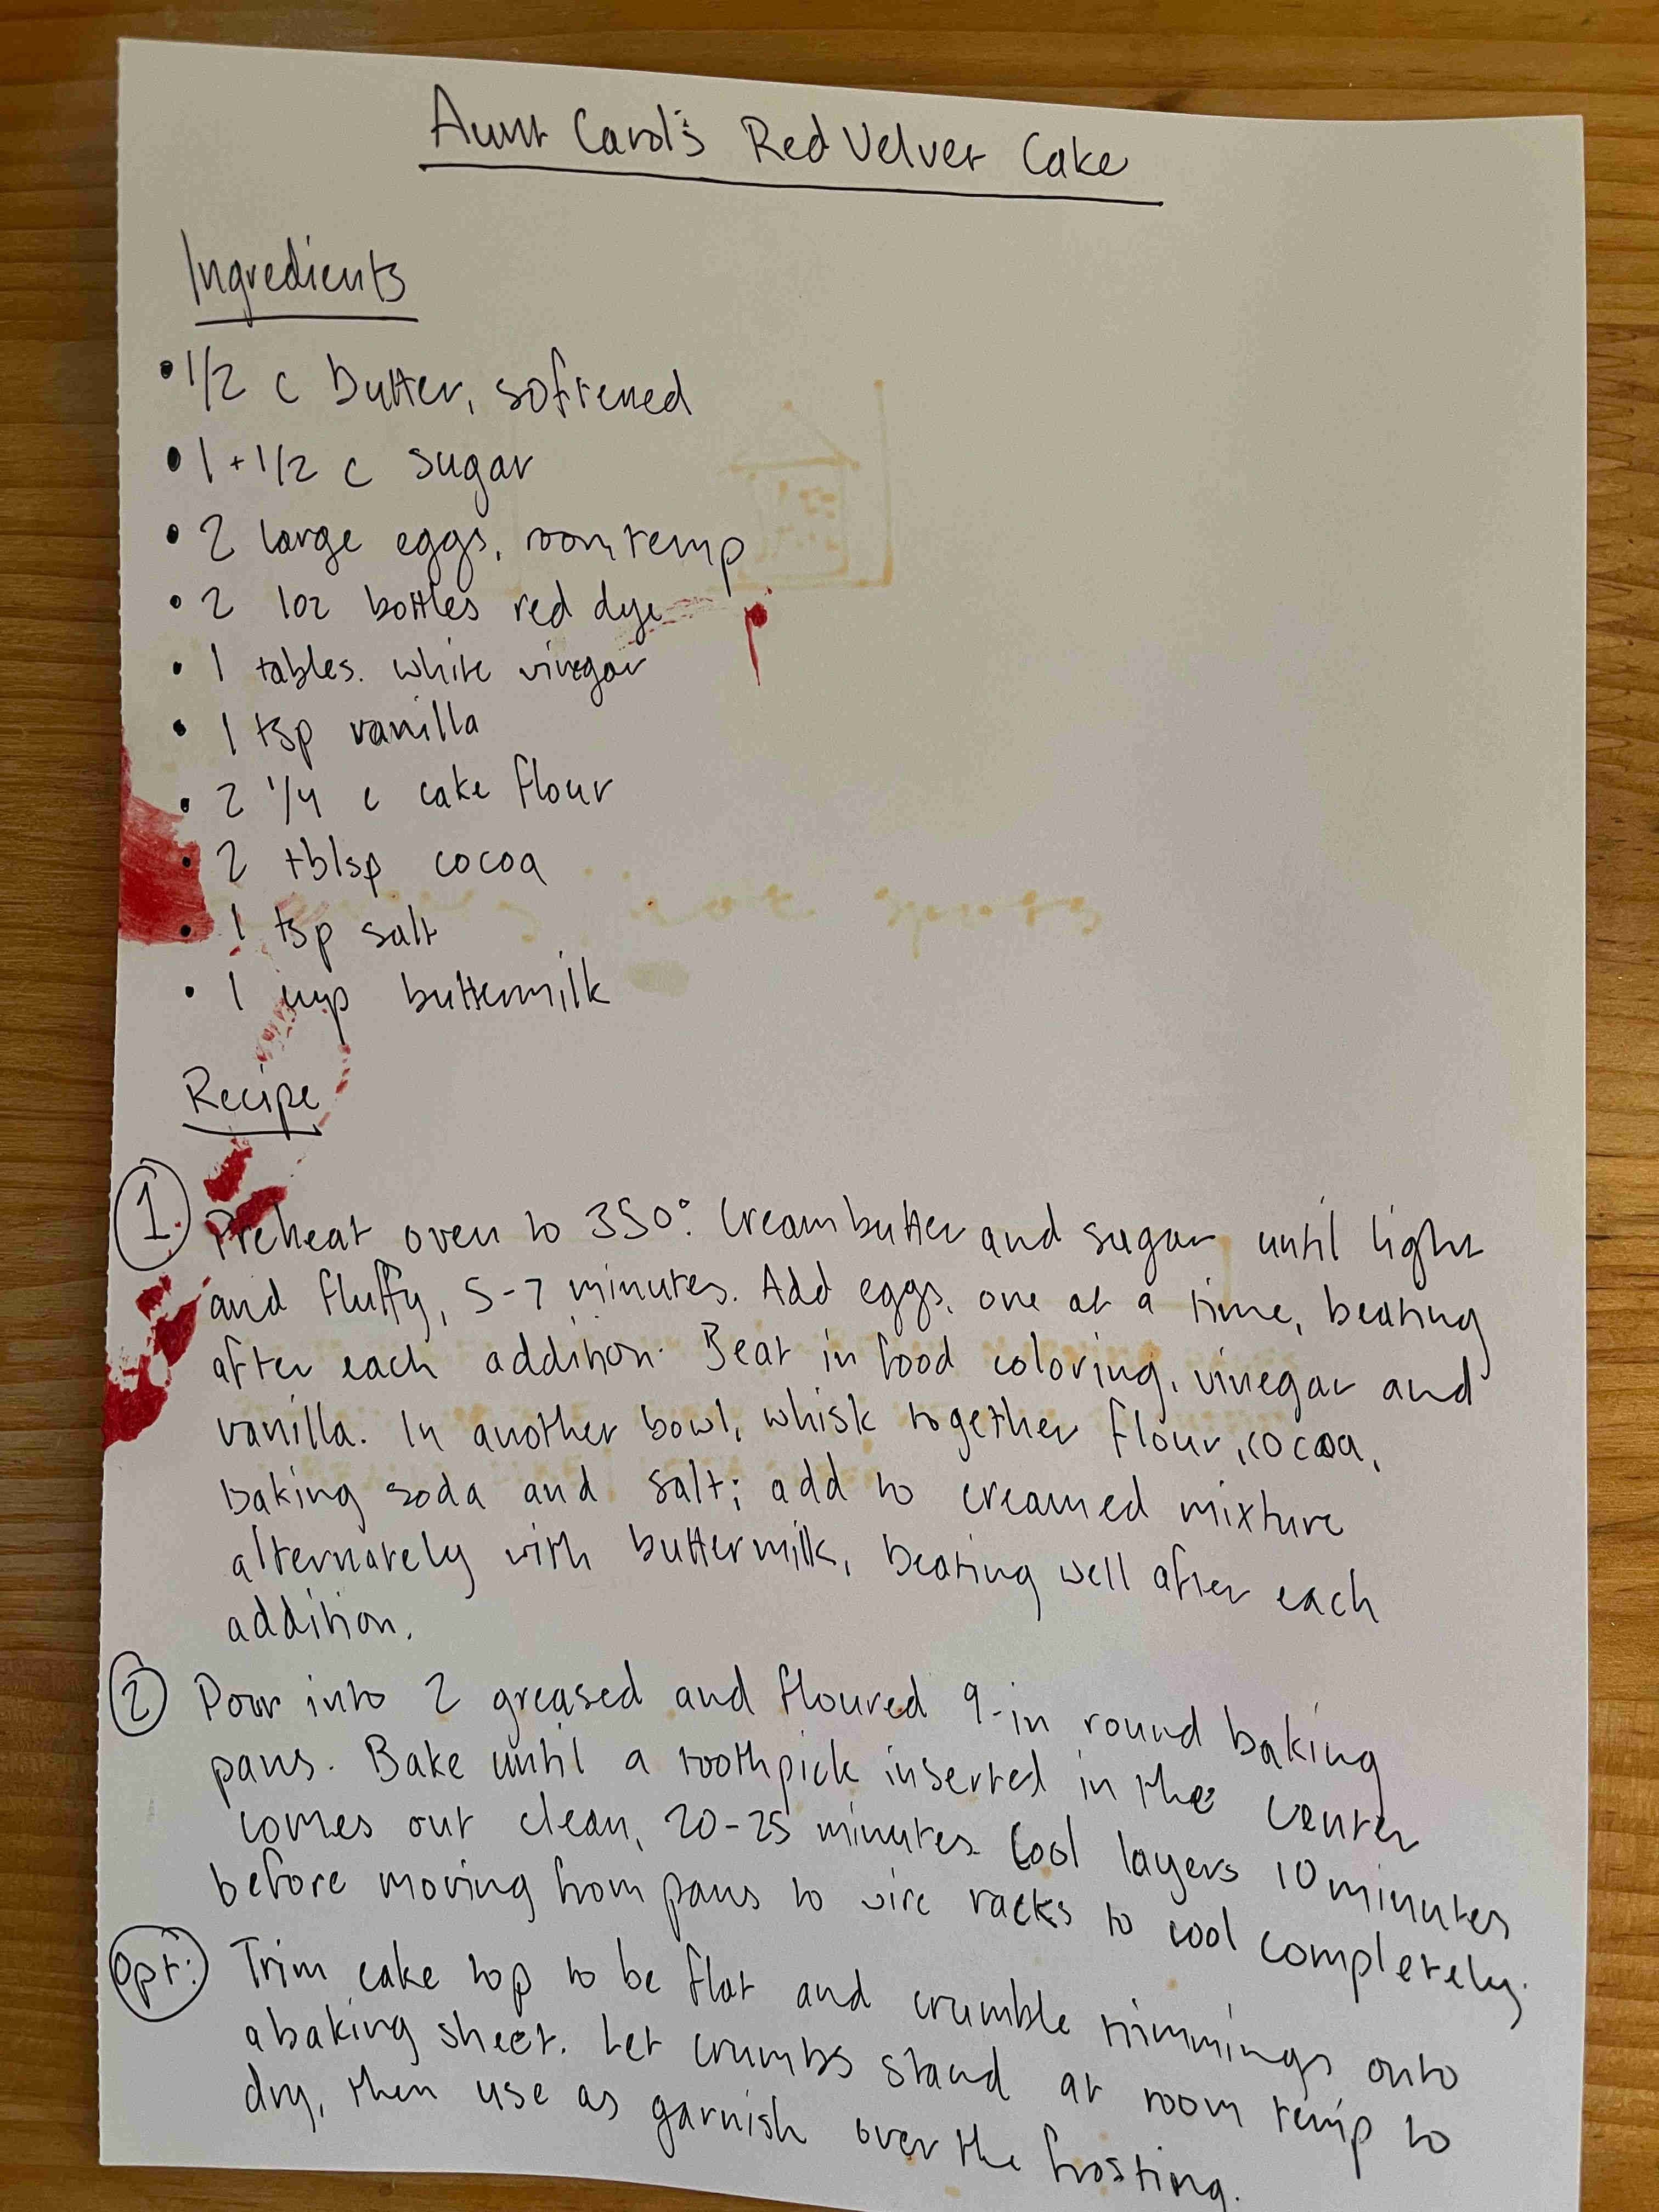 Aunt Carol's Red Velvet Cake
Ingredients
• 1/2 c butter, softened
• 1 + 1/2 c sugar
• 2 large eggs, room temp
• 2 1oz bottles red dye
• 1 tables. white vinegar
• 1 tsp vanilla
• 2 1/4 c cake flour
• 2 tblsp cocoa
• 1 tsp salt
• 1 cup buttermilk
Recipe
1. Preheat oven to 350°. Cream butter and sugar until light
and fluffy, 5-7 minutes. Add eggs, one at a time, beating
after each addition. Beat in food coloring, vinegar and
vanilla. In another bowl, whisk together flour, cocoa,
baking soda and salt; add to creamed mixture
alternately with buttermilk, beating well after each
addition.
2 Pour into 2 greased and floured 9-in round baking
pans. Bake until a toothpick inserted in the center
comes out clean, 20-25 minutes. Cool layers 10 minutes
before moving from pans to wire racks to cool completely.
Opt: Trim cake top to be flat and crumble trimmings onto
a baking sheet. Let crumbs stand at room temp to
dry, then use as garnish over the frosting.